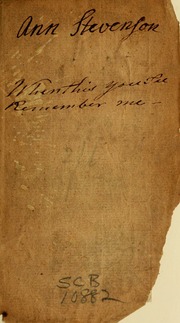 Ann Stevenson
When this you see
Remember me —
SCB
10882